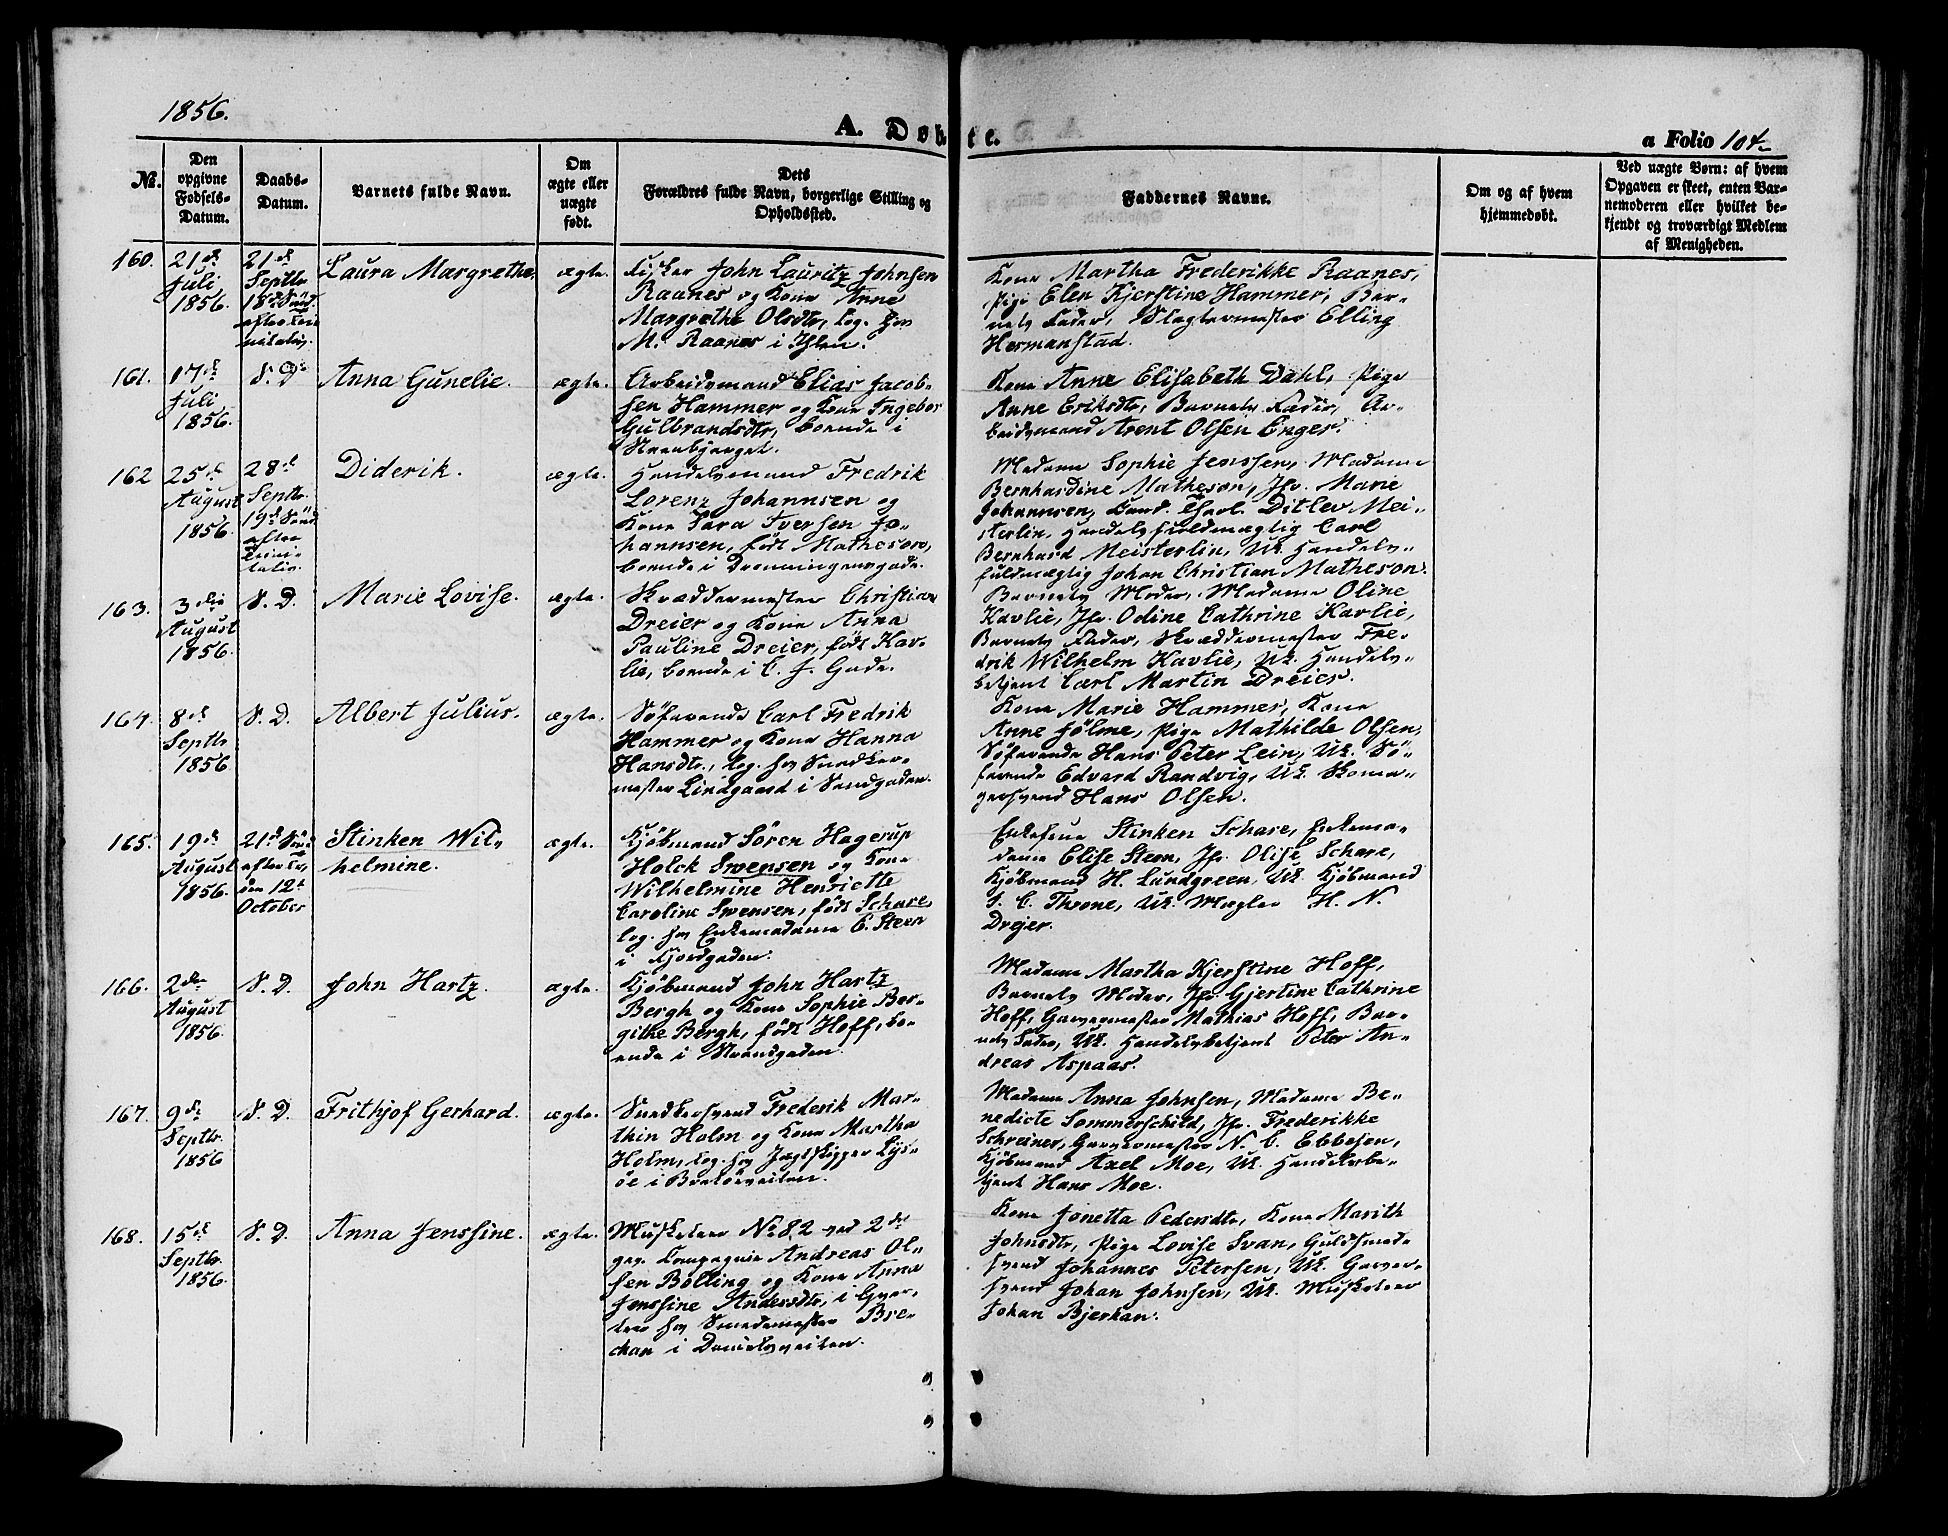 1856.
A. Døbte.
a Folio 104
No.
Den opgivne Fødsels-Datum.
Daabs-Datum.
Barnets fulde Navn.
Om ægte eller uægte født.
Dets Forældres fulde Navn, borgerlige Stilling og Opholdssted.
Faddernes Navne.
Om og af hvem hjemmedøbt.
Ved uægte Børn: af hvem Opgaven er skeet, enten Barnemoderen eller hvilket bekjendt og troværdigt Medlem af Menigheden.
160. 21de Juli 1856. 21de Septbr. 18de Sønd. efter Trinitatis. Laura Margrethe. ægte.
Fisker John Lauritz Johnsen
Raanes og Kone Anne
Margrethe Olsdtr, log. hos
M. Raanes i Ihlen.
Kone Martha Frederikke Raanes,
Pige Elen Kjerstine Hammer, Bar-
nets Fader, Slagtermester Elling
Hermanstad.
161. 17de Juli, 1856. S. D. Anna Gunelie. ægte.
Arbeidsmand Elias Jacob-
sen Hammer og Kone Ingebor
Gulbrandsdtr, boende i
Steenbjerget.
Kone Anne Elisabeth Dahl, Pige
Anne Eriksdtr, Barnets Fader, Ar-
beidsmand Arent Olsen Enger.
162 25de August 1856. 28de Septbr. 19de Sønd. efter Trinitatis. Diderik. ægte.
Handelsmand Fredrik
Lorenz Johannsen og
Kone Sara Iversen Jo-
hannsen, født Matheson,
boende i Dronningensgade.
Madame Sophie Jenssen, Madame
Bernhardine Matheson, Jfr. Marie
Johannsen, Cand. Theol. Ditlev Mei-
sterlin, Handelsfuldmægtig Carl
Bernhard Meisterlin, Uk. Handels-
fuldmægtig Johan Christian Matheson.
163. 3die August 1856. S. D. Marie Lovise. ægte.
Skræddermester Christian
Dreier og Kone Anna
Pauline Dreier, født Kav-
lie, boende i C. J. Gade.
Barnets Moder, Madame Oline
Kavlie, Jfr. Odine Cathrine Kavlie,
Barnets Fader, Skræddermester Fre-
drik Wilhelm Kavlie, Uk. Handels-
betjent Carl Martin Dreier.
164. 8de Septbr 1856 S. D. Albert Julius. ægte.
Søfarende Carl Fredrik
Hammer og Kone Hanna
Hansdtr., log. hos Snedker-
mester Lindgaard i Sandgaden.
Kone Marie Hammer, Kone
Anne Jølme, Pige Mathilde Olsen,
Søfarende Hans Peter Lein, Uk. Sö-
farende Edvard Randvig, Uk. Skoma-
gersvend Hans Olsen.
165. 19de August 1856. 21de Sönd efter Tr. den 12te October Stinken Wil-
helmine. ægte.
Kjöbmand Sören Hagerup
Holck Swensen og Kone
Wilhelmine Henriette
Caroline Swensen, født Schare,
log. hos Enkemadame E. Steen
i Fjordgaden.
Enkefrue Stinken Schare, Enkema-
dame Elise Steen, Jfr. Olise Schare,
Kjöbmand H. Lundgreen, Uk. Kjöbmand
S. C. Throne, Uk. Mægler H. N.
Drejer.
166. 2den August 1856. S. D. John Hartz. ægte.
Kjöbmand John Hartz
Bergh og Kone Sophie Ber-
githe Bergh, født Hoff, bo-
ende i Strandgaden.
Madame Martha Kjerstine Hoff,
Barnets Moder, Jfr. Gjertine Cathrine
Hoff, Garvermester Mathias Hoff, Bar-
nets Fader, Uk. Handelsbetjent Peter An-
dreas Aspaas.
167. 9de Septbr. 1856 S. D. Frithjof Gerhard. ægte.
Snedkersvend Frederik Mar-
thin Holm og Kone Martha
Holm, log. hos Jagtskipper Lys-
öe i Bratörveiten.
Madame Anna Johnsen, Madame Be-
nedicte Sommerschild, Jfr. Frederikke
Schreiner, Garvermester N. C. Ebbesen,
Kjöbmand Axel Moe, Uk. Handelsbe-
tjent Hans Moe.
168. 15de Septbr. 1856. S. D. Anna Jenssine. ægte.
Musketeer No 82 ved 2det
gev. Compagnie Andreas Ol-
sen Bölling og Kone Anna
Jenssine Andersdtr, i Qvar-
teer hos Smedemester Bre-
chan i Danielsveiten.
Kone Jonetta Pedersdtr, Kone Marith
Johnsdtr, Pige Lovise Svan, Guldsmed-
svend Johannes Petersen, Uk. Garver-
svend Johan Johnsen, Uk. Musketeer
Johan Bjerkan.